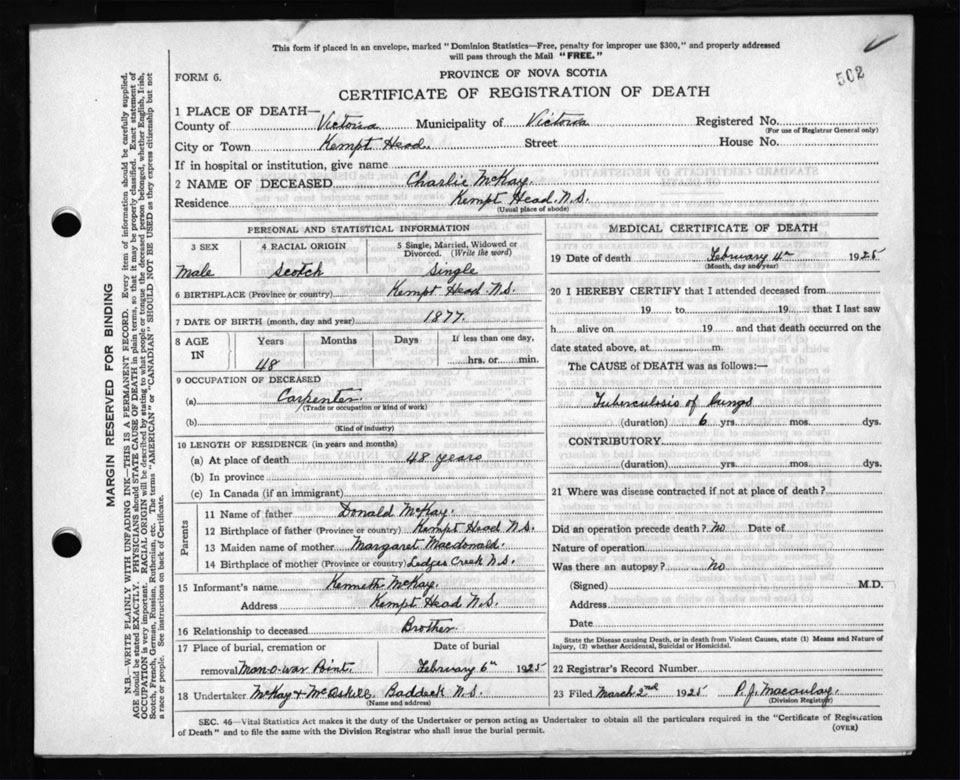 This form if placed in an envelope, marked "Dominion Statistics—Free, penalty for improper use $300," and properly addressed
will pass through the Mail "FREE."
502
FORM 6.
PROVINCE OF NOVA SCOTIA
CERTIFICATE OF REGISTRATION OF DEATH
1 PLACE OF DEATH—
County of Victoria Municipality of Victoria Registered No.
(For use of Registrar General only)
City or Town Kempt Head. Street House No.
If in hospital or institution, give name
2 NAME OF DECEASED Charlie McKay.
Residence Kempt Head. N.S.
(Usual place of abode)
PERSONAL AND STATISTICAL INFORMATION
3 SEX 4 RACIAL ORIGIN 5 Single, Married, Widowed or
Divorced. (Write the word)
Male Scotch Single
6 BIRTHPLACE (Province or country) Kempt Head N.S.
7 DATE OF BIRTH (month, day and year) 1877.
8 AGE IN Years Months Days If less than one day,
48 hrs. or min.
9 OCCUPATION OF DECEASED
(a) Carpenter
(Trade or occupation or kind of work)
(b)
(Kind of industry)
10 LENGTH OF RESIDENCE (in years and months)
(a) At place of death 48 years
(b) In province
(c) In Canada (if an immigrant)
Parents
11 Name of father Donald McKay.
12 Birthplace of father (Province or country) Kempt Head N.S.
13 Maiden name of mother Margaret Macdonald.
14 Birthplace of mother (Province or country) Ledges Creek N.S.
15 Informant's name Kenneth McKay.
Address Kempt Head N.S.
16 Relationship to deceased Brother
17 Place of burial, cremation or Date of burial
removal Man-o-war Point. February 6th 1925
18 Undertaker McKay & McAskill, Baddeck N.S.
(Name and address)
MEDICAL CERTIFICATE OF DEATH
19 Date of death February 4th 1925
(Month, day and year)
20 I HEREBY CERTIFY that I attended deceased from
19 to 19 that I last saw
h alive on 19 and that death occurred on the
date stated above, at m.
The CAUSE of DEATH was as follows:—
Tuberculosis of lungs
(duration) 6 yrs. mos. dys.
CONTRIBUTORY
(duration) yrs. mos. dys.
21 Where was disease contracted if not at place of death?
Did an operation precede death? No Date of
Nature of operation
Was there an autopsy? No
(Signed) M.D.
Address
Date
State the Disease causing Death, or in death from Violent Causes, state (1) Means and Nature of
Injury, (2) whether Accidental, Suicidal or Homicidal.
22 Registrar's Record Number
23 Filed March 2nd 1925 P.J. Macaulay.
(Division Registrar)
SEC. 46—Vital Statistics Act makes it the duty of the Undertaker or person acting as Undertaker to obtain all the particulars required in the "Certificate of Registration
of Death" and to file the same with the Division Registrar who shall issue the burial permit.
(OVER)
MARGIN RESERVED FOR BINDING
N.B.—WRITE PLAINLY WITH UNFADING INK—THIS IS A PERMANENT RECORD. Every item of information should be carefully supplied.
AGE should be stated EXACTLY. PHYSICIANS should STATE CAUSE OF DEATH in plain terms, so that it may be properly classified. Exact statement of
OCCUPATION is very important. RACIAL ORIGIN will be described by stating to what people or tongue the deceased person belonged, whether English, Irish,
Scotch, French, German, Russian, Ruthenian, etc. The terms "AMERICAN" or "CANADIAN" SHOULD NOT BE USED as they express citizenship but not
a race or people. See instructions on back of Certificate.